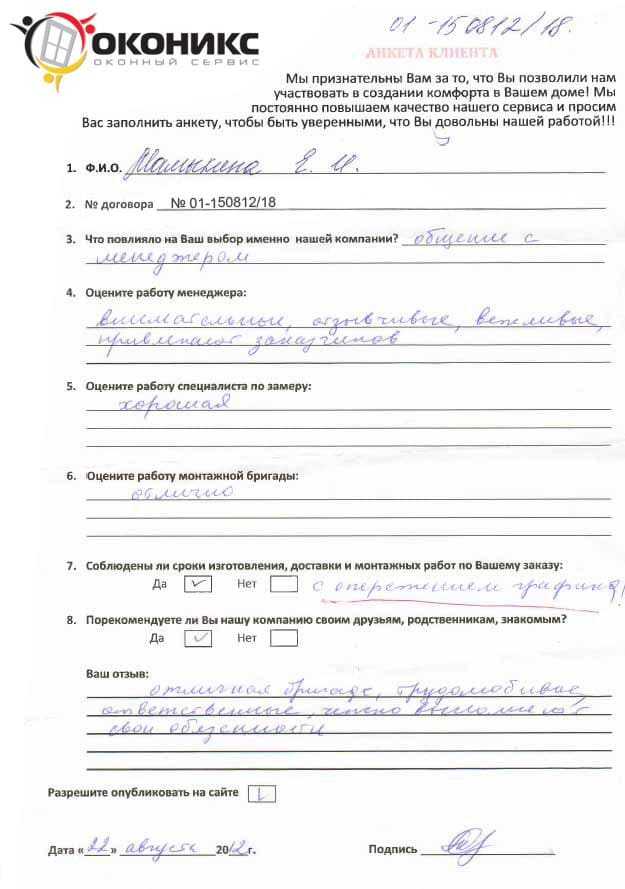 ОКОНИКС
ОКОННЫЙ СЕРВИС
01-150812/18.
АНКЕТА КЛИЕНТА
Мы признательны Вам за то, что Вы позволили нам
участвовать в создании комфорта в Вашем доме! Мы
постоянно повышаем качество нашего сервиса и просим
Вас заполнить анкету, чтобы быть уверенными, что Вы довольны нашей работой!!!
1. Ф.И.О. Мамыкина Е. И.
2. № договора № 01-150812/18
3. Что повлияло на Ваш выбор именно нашей компании? общение с
менеджером
4. Оцените работу менеджера:
внимательные, отзывчивые, вежливые,
привлекают заказчиков
5. Оцените работу специалиста по замеру:
хорошая
6. Оцените работу монтажной бригады:
отлично
7. Соблюдены ли сроки изготовления, доставки и монтажных работ по Вашему заказу:
Да ✓ Нет с опережением графика!
8. Порекомендуете ли Вы нашу компанию своим друзьям, родственникам, знакомым?
Да ✓ Нет
Ваш отзыв:
отличная бригада, трудолюбивые,
ответственные, четко выполняют
свои обязенности
Разрешите опубликовать на сайте
Дата «22» августа 2012г. Подпись